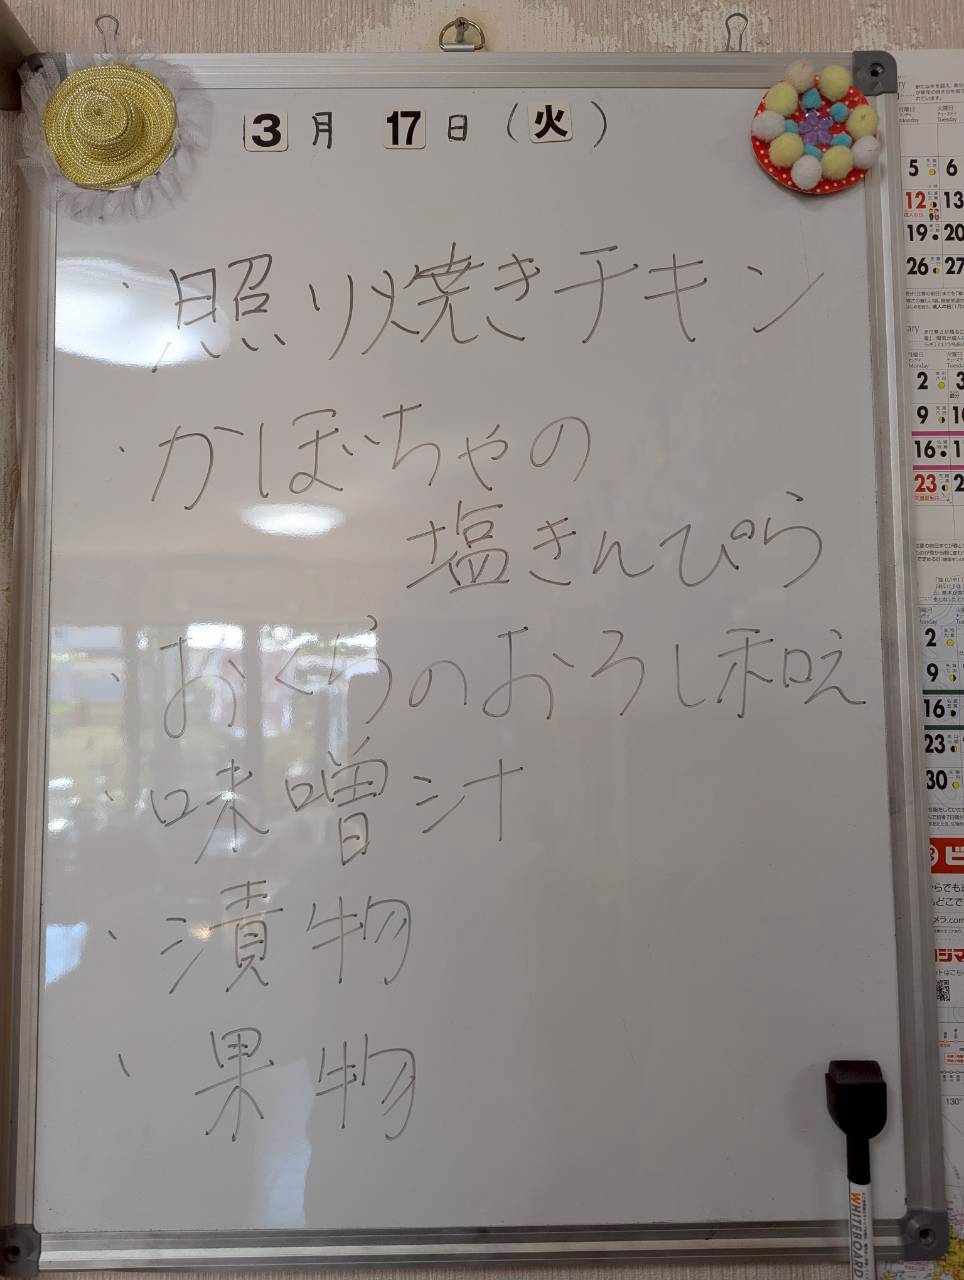 3月 17日(火)
・照り焼きチキン
・かぼちゃの
塩きんぴら
・おくらのおろし和え
・味噌汁
・漬物
・果物
WHITEBOARD
5 6
12 13
19 20
26 27
2 3
9
16
23
2
9
16
23
30
130°